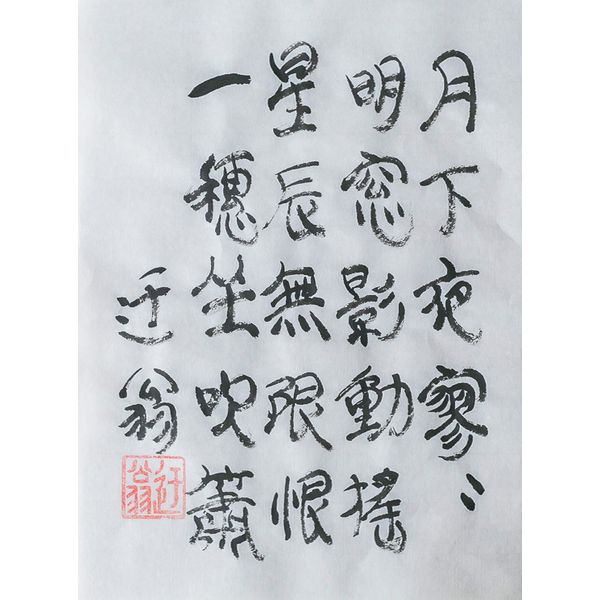 月下夜寥〻
明窓影動搖
星辰無限恨
一穗坐吹簫
迂翁
迂翁